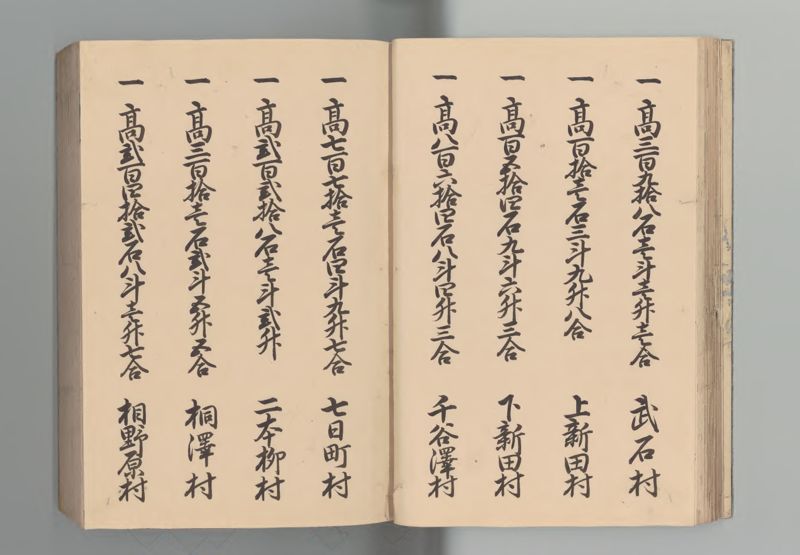 一高三百九拾八石壱斗壱升壱合 武石村
一高百拾壱石三斗九升八合 上新田村
一高百五拾四石九斗六升三合 下新田村
一高八百六拾四石八斗四升三合 千谷澤村
一高七百七拾壱石四斗九升七合 七日町村
一高弐百弐拾八石壱斗弐升 二本柳村
一高三百拾壱石弐斗五升五合 桐澤村
一高弐百四拾弐石八斗壱升七合 相野原村